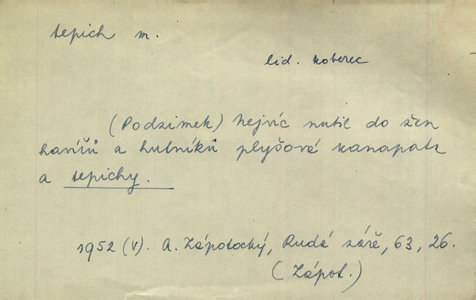 tepich m.
lid. koberec
(Podzimek) Nejvíc nutil do žen
havířů a hutníků plyšové kanapata
a tepichy.
1952 (V). A. Zápotocký, Rudá záře, 63, 26.
(Zápot.)